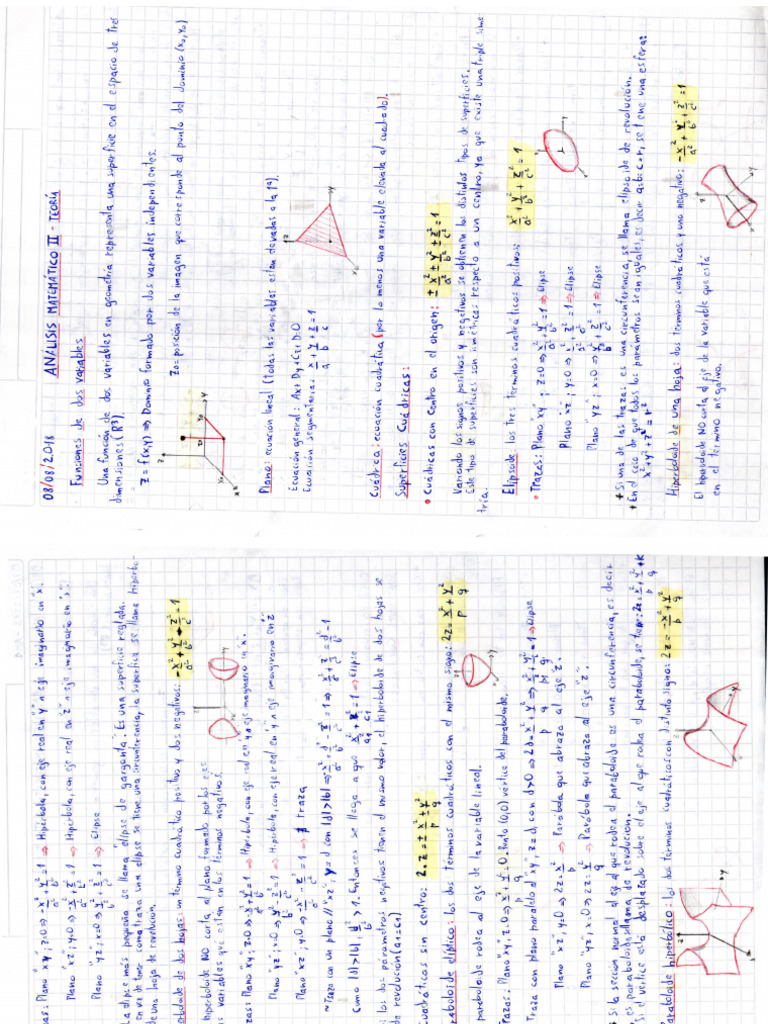 08/08/2018 ANÁLISIS MATEMÁTICO II - TEORÍA
Funciones de dos variables
Una función de dos variables en geometría representa una superficie en el espacio de tres
dimensiones (R³).
Z = f(x,y) ⇒ Dominio formado por dos variables independientes.
Z₀ = posición de la imagen que corresponde al punto del dominio (x₀, y₀)
Plano: ecuación lineal (todas las variables están elevadas a la 1ª)
Ecuación general: Ax + By + Cz + D = 0
Ecuación segmentaria: x/a + y/b + z/c = 1
Cuádrica: ecuación cuadrática (por lo menos una variable elevada al cuadrado).
Superficies Cuádricas:
• Cuádricas con centro en el origen: ± x²/a² ± y²/b² ± z²/c² = 1
Variando los signos positivos y negativos se obtienen los distintos tipos de superficies.
Este tipo de superficies son simétricas respecto a un centro, ya que existe una triple sime-
tría.
Elipsoide: los tres términos cuadráticos positivos: x²/a² + y²/b² + z²/c² = 1
• Trazas: Plano "xy"; z=0 ⇒ x²/a² + y²/b² = 1 ⇒ Elipse
Plano "xz"; y=0 ⇒ x²/a² + z²/c² = 1 ⇒ Elipse
Plano "yz"; x=0 ⇒ y²/b² + z²/c² = 1 ⇒ Elipse
+ Si una de las trazas es una circunferencia, se llama elipsoide de revolución.
+ En el caso de que todos los parámetros sean iguales, es decir a=b=c=r, se tiene una esfera:
x² + y² + z² = r²
Hiperboloide de una hoja: dos términos cuadráticos y uno negativo: - x²/a² + y²/b² + z²/c² = 1
El hiperboloide NO corta al eje de la variable que está
en el término negativo.
as: Plano "xy"; z=0 ⇒ -x²/a² + y²/b² = 1 ⇒ Hipérbola, con eje real en y ∧ eje imaginario en "x".
Plano "xz"; y=0 ⇒ -x²/a² + z²/c² = 1 ⇒ Hipérbola, con eje real en "z" ∧ eje imaginario en "x".
Plano "yz"; x=0 ⇒ y²/b² + z²/c² = 1 ⇒ Elipse
La elipse más pequeña se llama elipse de garganta. Es una superficie reglada.
En vez de tener como traza una elipse se tiene una circunferencia, la superficie se llama hiperbo-
de una hoja de revolución.
erboloide de dos hojas: un término cuadrático positivo y dos negativos: - x²/a² + y²/b² - z²/c² = 1
hiperboloide NO corta al plano formado por los ejes
as variables que están en los términos negativos.
zas: Plano "xy"; z=0 ⇒ -x²/a² + y²/b² = 1 ⇒ Hipérbola, con eje real en y ∧ eje imaginario en "x".
Plano "yz"; x=0 ⇒ y²/b² - z²/c² = 1 ⇒ Hipérbola, con eje real en "y" ∧ eje imaginario en "z"
Plano "xz"; y=0 ⇒ -x²/a² - z²/c² = 1 ⇒ ∄ traza
~ Traza con un plano // "xz", y = d con |d|>|b| ⇒ x²/a² + z²/c² = d²/b² - 1
Como |d|>|b|, d²/b² > 1. Entonces se llega a que x²/a₁² + z²/c₁² = 1 ⇒ Elipse
i los dos parámetros negativos tienen el mismo valor, el hiperboloide de dos hojas se
de revolución (a₁ = c₁)
Cuadráticos sin centro: 2.z = ± x²/p ± y²/q
raboloide elíptico: los dos términos cuadráticos con el mismo signo: 2z = x²/p + y²/q
paraboloide rodea al eje de la variable lineal.
razas: Plano "xy"; z=0 ⇒ x²/p + y²/q = 0. Punto (0,0) vértice del paraboloide.
Traza con plano paralelo al "xy", z = d, con d>0 ⇒ 2d = x²/p + y²/q ⇒ Elipse
Plano "xz", y=0 ⇒ 2z = x²/p ⇒ Parábola que abraza al eje "z".
Plano "yz"; x=0 ⇒ 2z = y²/q ⇒ Parábola que abraza al eje "z".
Si la sección normal al eje que rodea el paraboloide es una circunferencia, es decir
es paraboloide se llama de revolución.
Si el vértice está desplazado sobre el eje al que rodea el paraboloide, se tiene: 2z = x²/p + y²/q + k
araboloide hiperbólico: los dos términos cuadráticos con distinto signo: 2z = - x²/p + y²/q